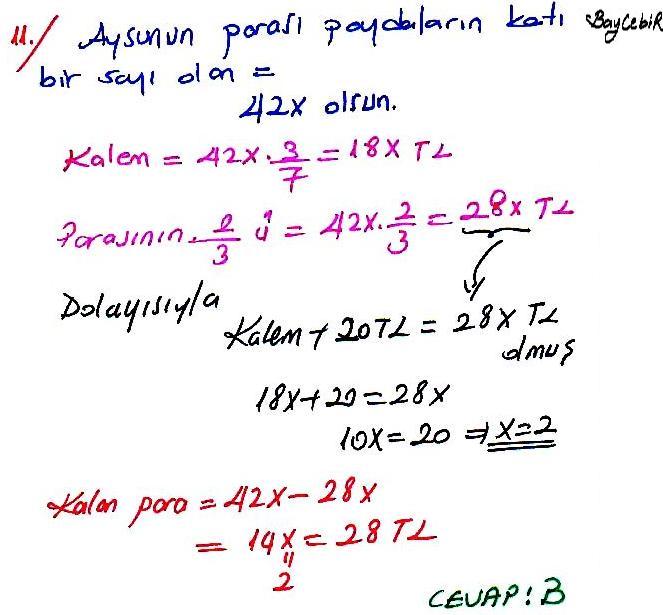 11./ Aysunun parası paydaların katı BayCebir
bir sayı olan =
42x olsun.
Kalem = 42x . 3/7 = 18x TL
Parasının 2/3 ü = 42x . 2/3 = 28x TL
Dolayısıyla
Kalem + 20TL = 28x TL
olmuş
18x+20=28x
10x=20 ⇒ x=2
Kalan para = 42x - 28x
= 14x = 28 TL
"
2
CEVAP: B